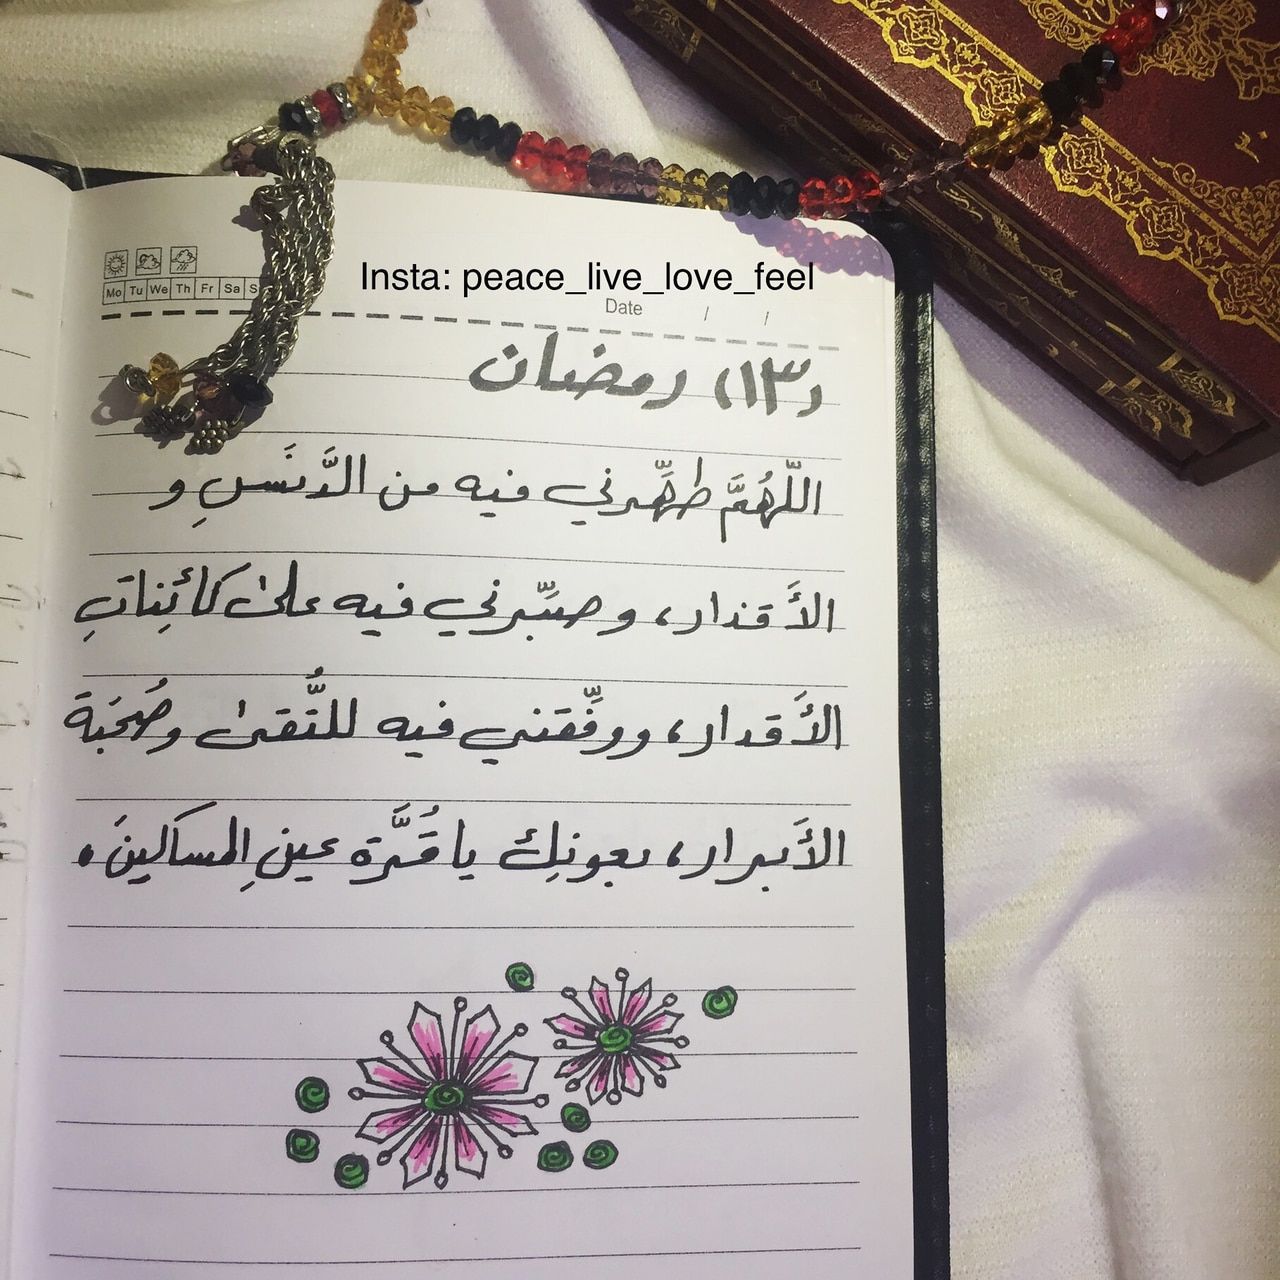 Insta: peace_live_love_feel
Mo Tu We Th Fr Sa S
Date / /
(١٣) رمضان
اللّهُمَّ طهِّرني فيه من الدَّنَسِ و
الأَقذار، وصبِّرني فيه على كائِناتِ
الأَقدار، ووفِّقني فيه للتُّقى وصُحبَة
الأَبرار، بعونِك يا قُرَّة عينِ المساكينَ.